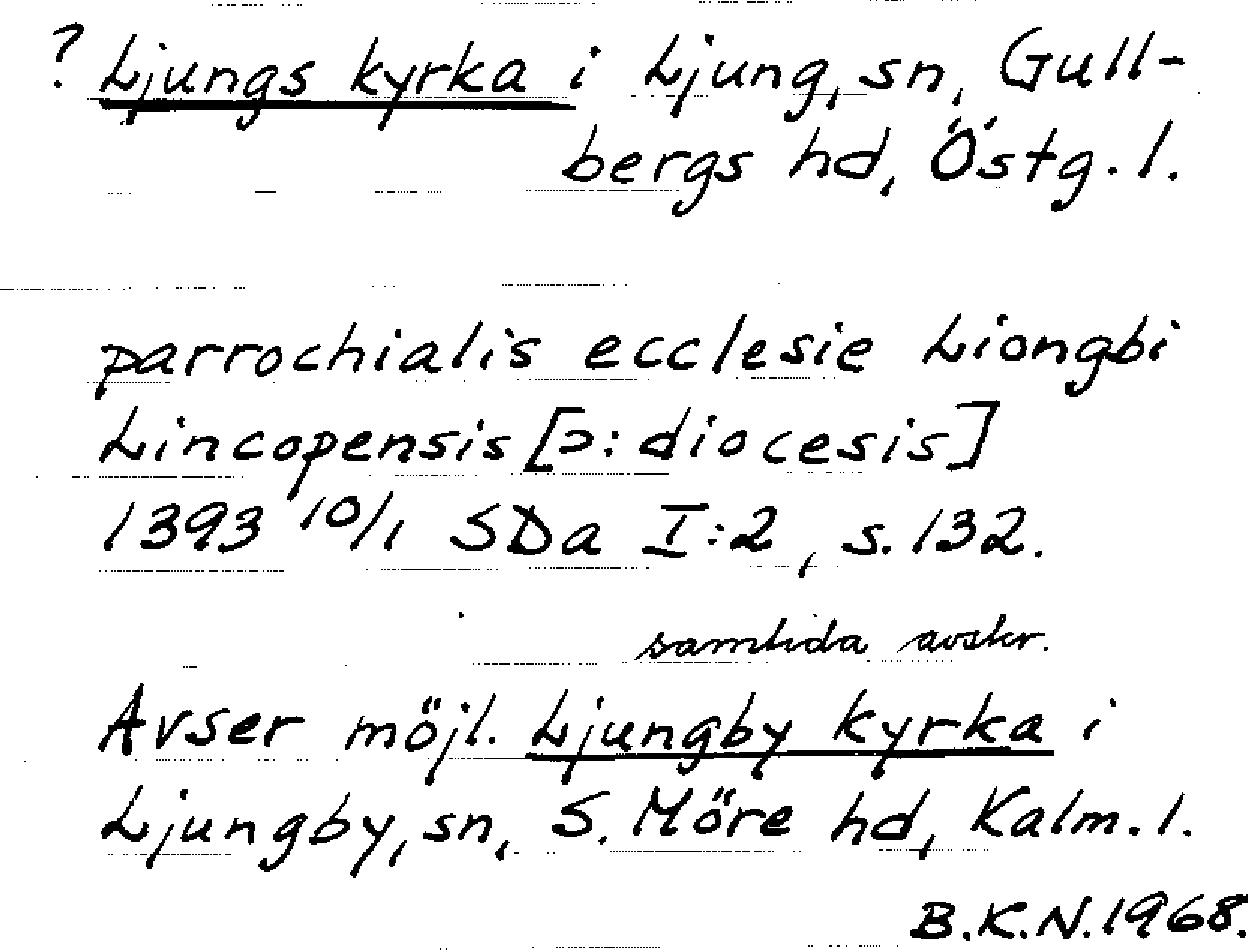 ? Ljungs kyrka i Ljung, sn, Gull-
bergs hd, Östg. l.
parrochialis ecclesie Liongbi
Lincopensis [ɔ: diocesis]
1393 10/1 SDa I:2, s. 132.
samtida avskr.
Avser möjl. Ljungby kyrka i
Ljungby, sn, S. Möre hd, Kalm. l.
B.K.N. 1968.